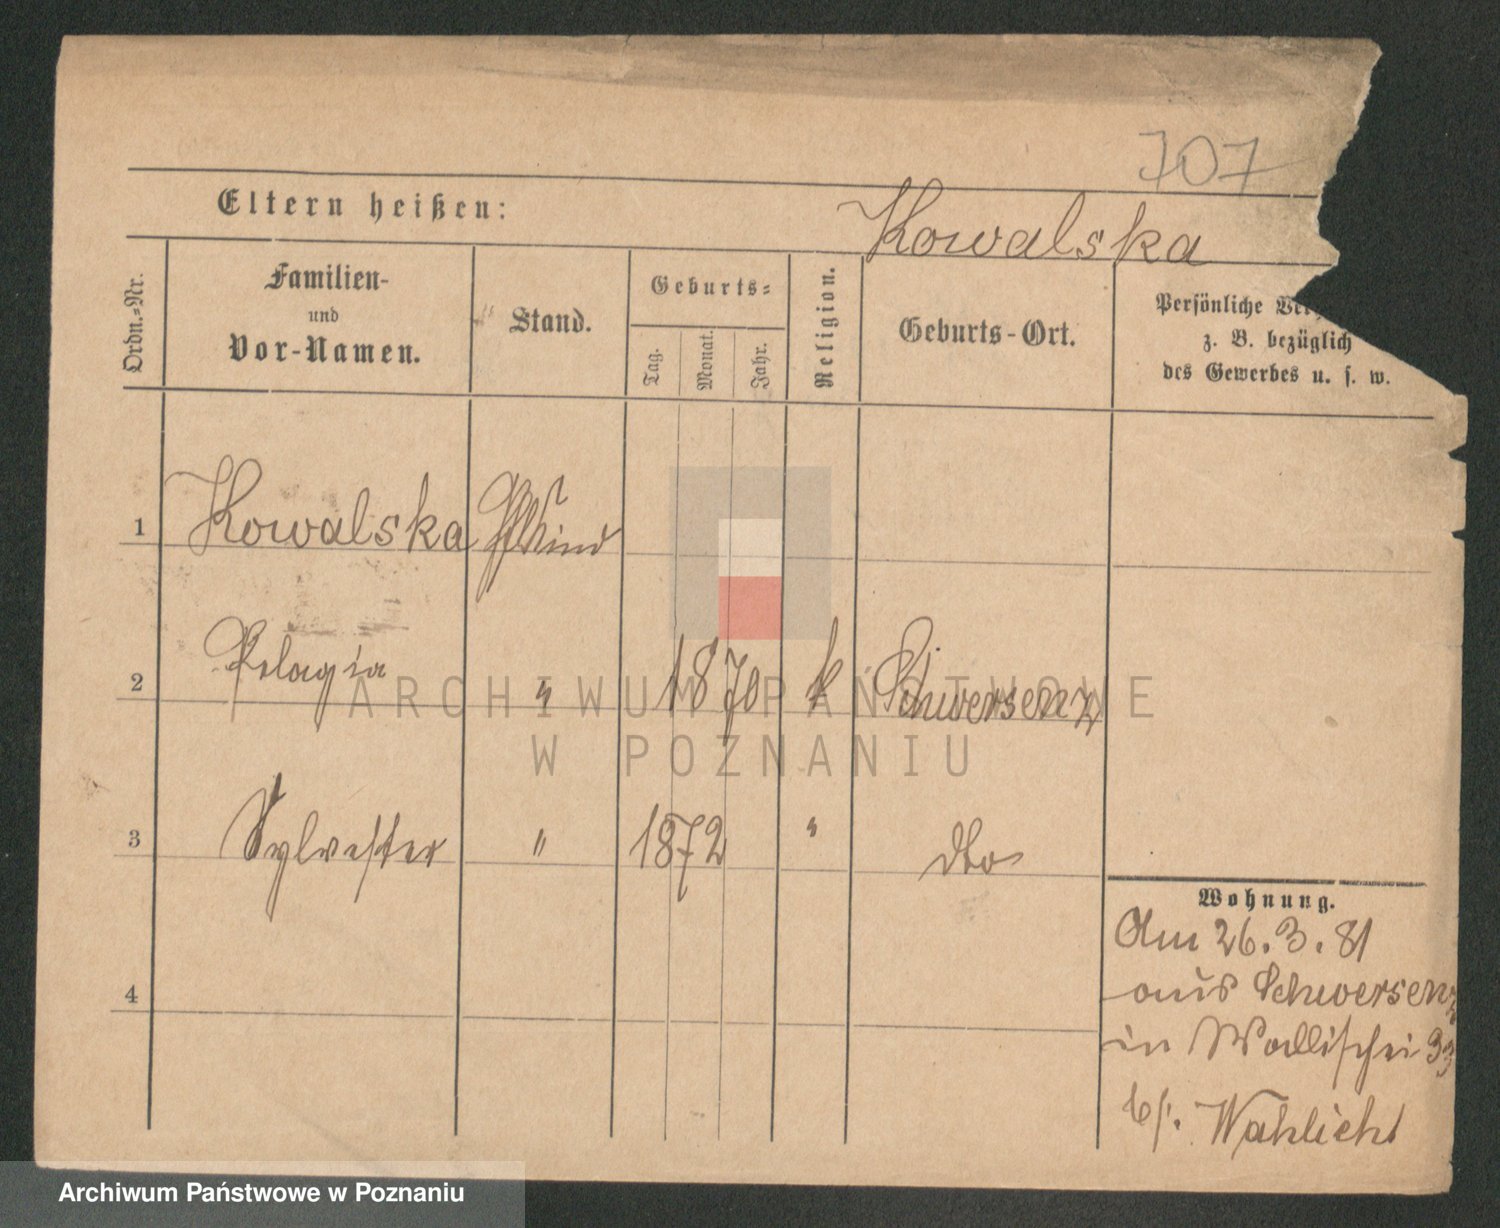 707
Eltern heißen:
Kowalska
Ordn.-Nr.
Familien-
und
Vor-Namen.
Stand.
Geburts-
Tag.
Monat.
Jahr.
Religion.
Geburts-Ort.
Persönliche
z. B. bezüglich
des Gewerbes u. s. w.
1 Kowalska
2 Pelagia " 1870 k Schwersenz
3 Sylvester " 1872 " dto
4
Wohnung.
Am 26.3.81
aus Schwersenz
in Wallischei 33
b/. Wahlicht
ARCHIWUM PAŃSTWOWE
W POZNANIU
Archiwum Państwowe w Poznaniu